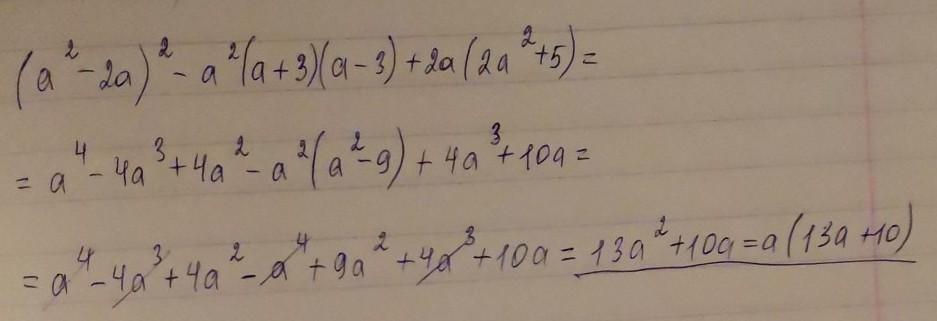 (a² - 2a)² - a²(a+3)(a-3) + 2a(2a²+5) =
= a⁴ - 4a³ + 4a² - a²(a²-9) + 4a³ + 10a =
= a⁴ - 4a³ + 4a² - a⁴ + 9a² + 4a³ + 10a = 13a² + 10a = a(13a+10)